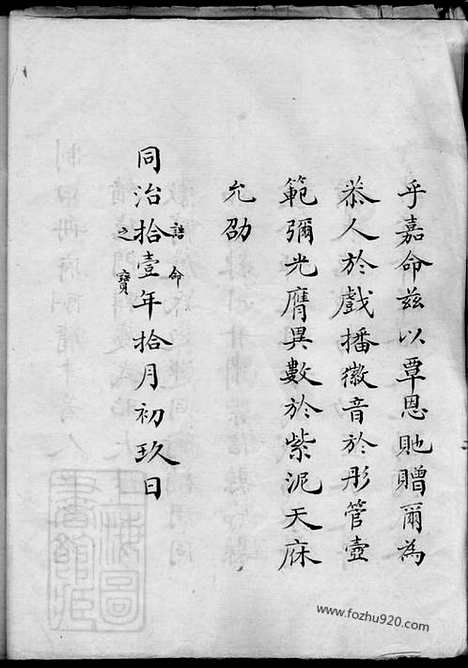 乎嘉命兹以覃恩貤贈爾為
恭人於戲播徽音於彤管壼
範彌光膺異數於紫泥天庥
允劭
同治拾壹年拾月初玖日
誥命
之寶
www.fozhu920.com